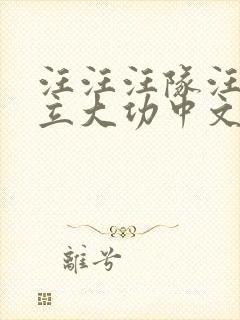 汪汪汪隊汪
立大功中文
離兮